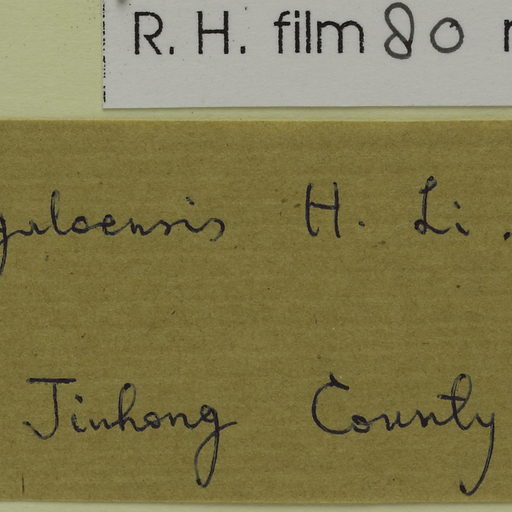 R. H. film 80
guloensis H. Li.
Jinhong County